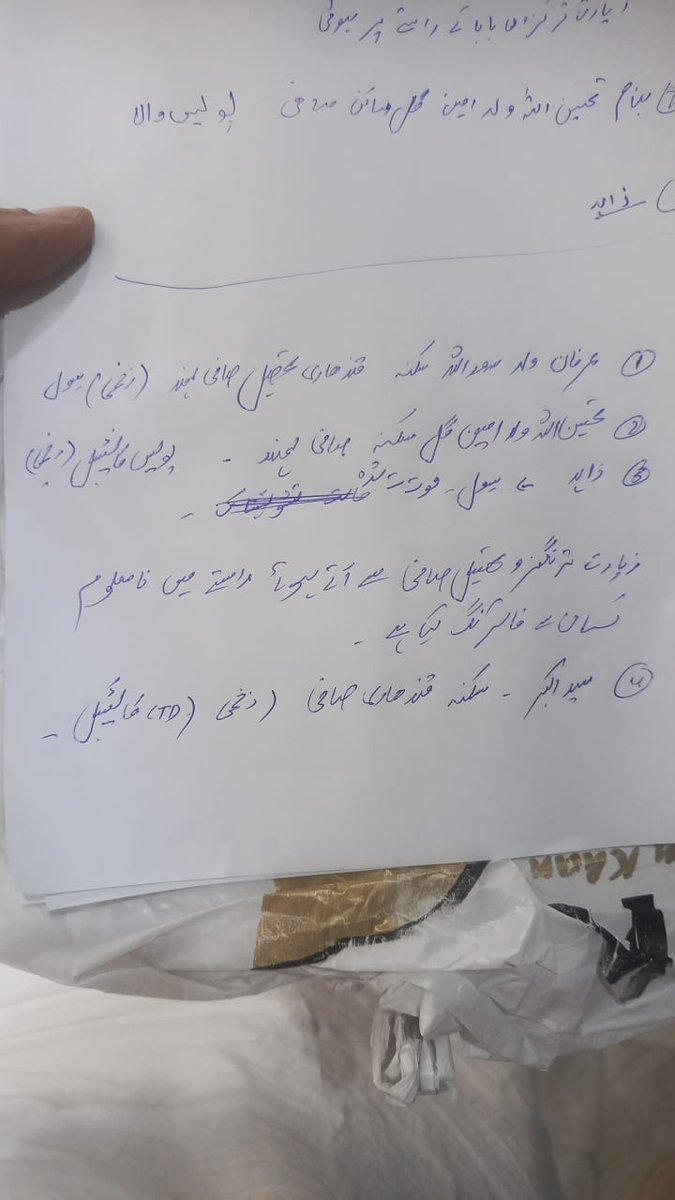 زیارت بابا کے راستے پر ہوئی
بنام تحسین اللہ ولد امین گل ساکن صافی پولیس والا
زاہد
① عرفان ولد سعد اللہ سکنہ قندھاری تحصیل صافی مہمند (زخمی) سول
② تحسین اللہ ولد امین گل سکنہ صافی مہمند - پولیس کانسٹیبل (زخمی)
③ زاہد سول - فوت شدہ -
زیارت تحصیل صافی سے آتے ہوئے راستے میں نامعلوم
کسان نے فائرنگ کیا ہے -
④ سید اکبر - سکنہ قندھاری صافی (زخمی) (CTD کانسٹیبل) -
Khan